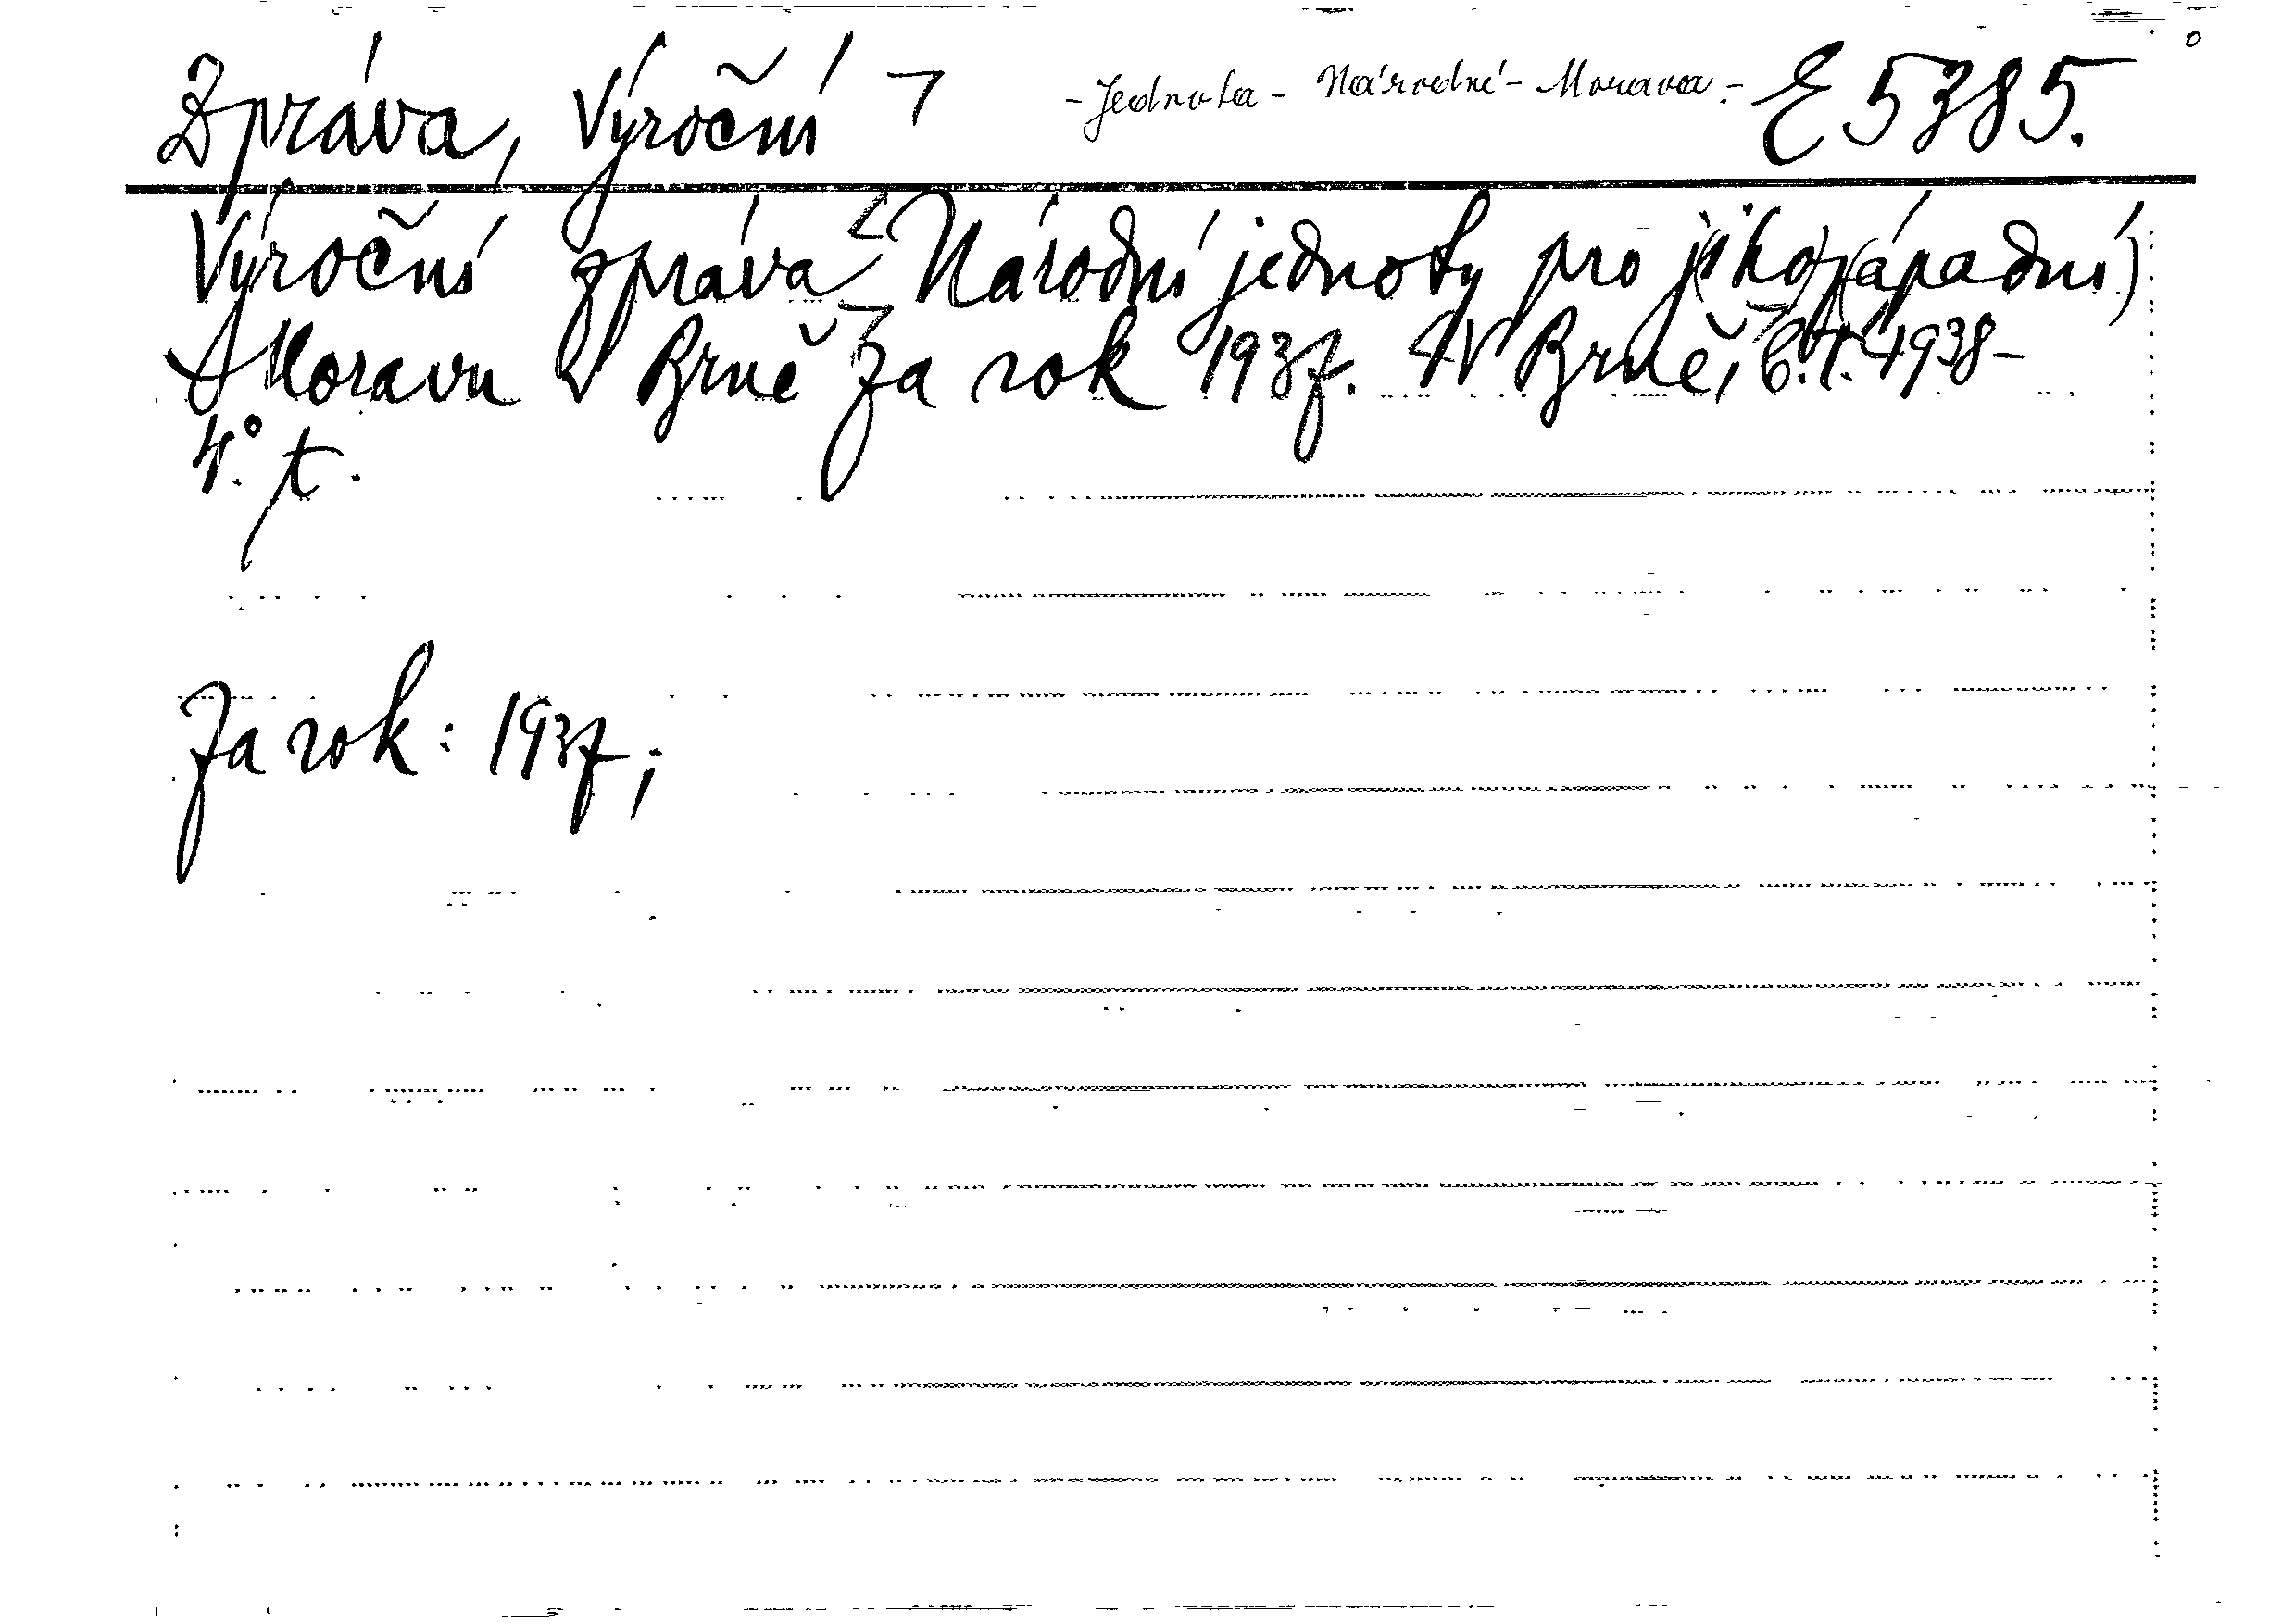 Zpráva, Výroční - Jednota - Národní - Morava - E 5385.
Výroční zpráva Národní jednoty pro jiho(západní)
Moravu v Brně za rok 1937. V Brně, b.t. 1938-
4.° t.
Za rok: 1937;